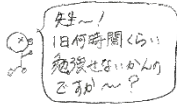 先生～！
1日何時間くらい
勉強せないかんの
ですか～？